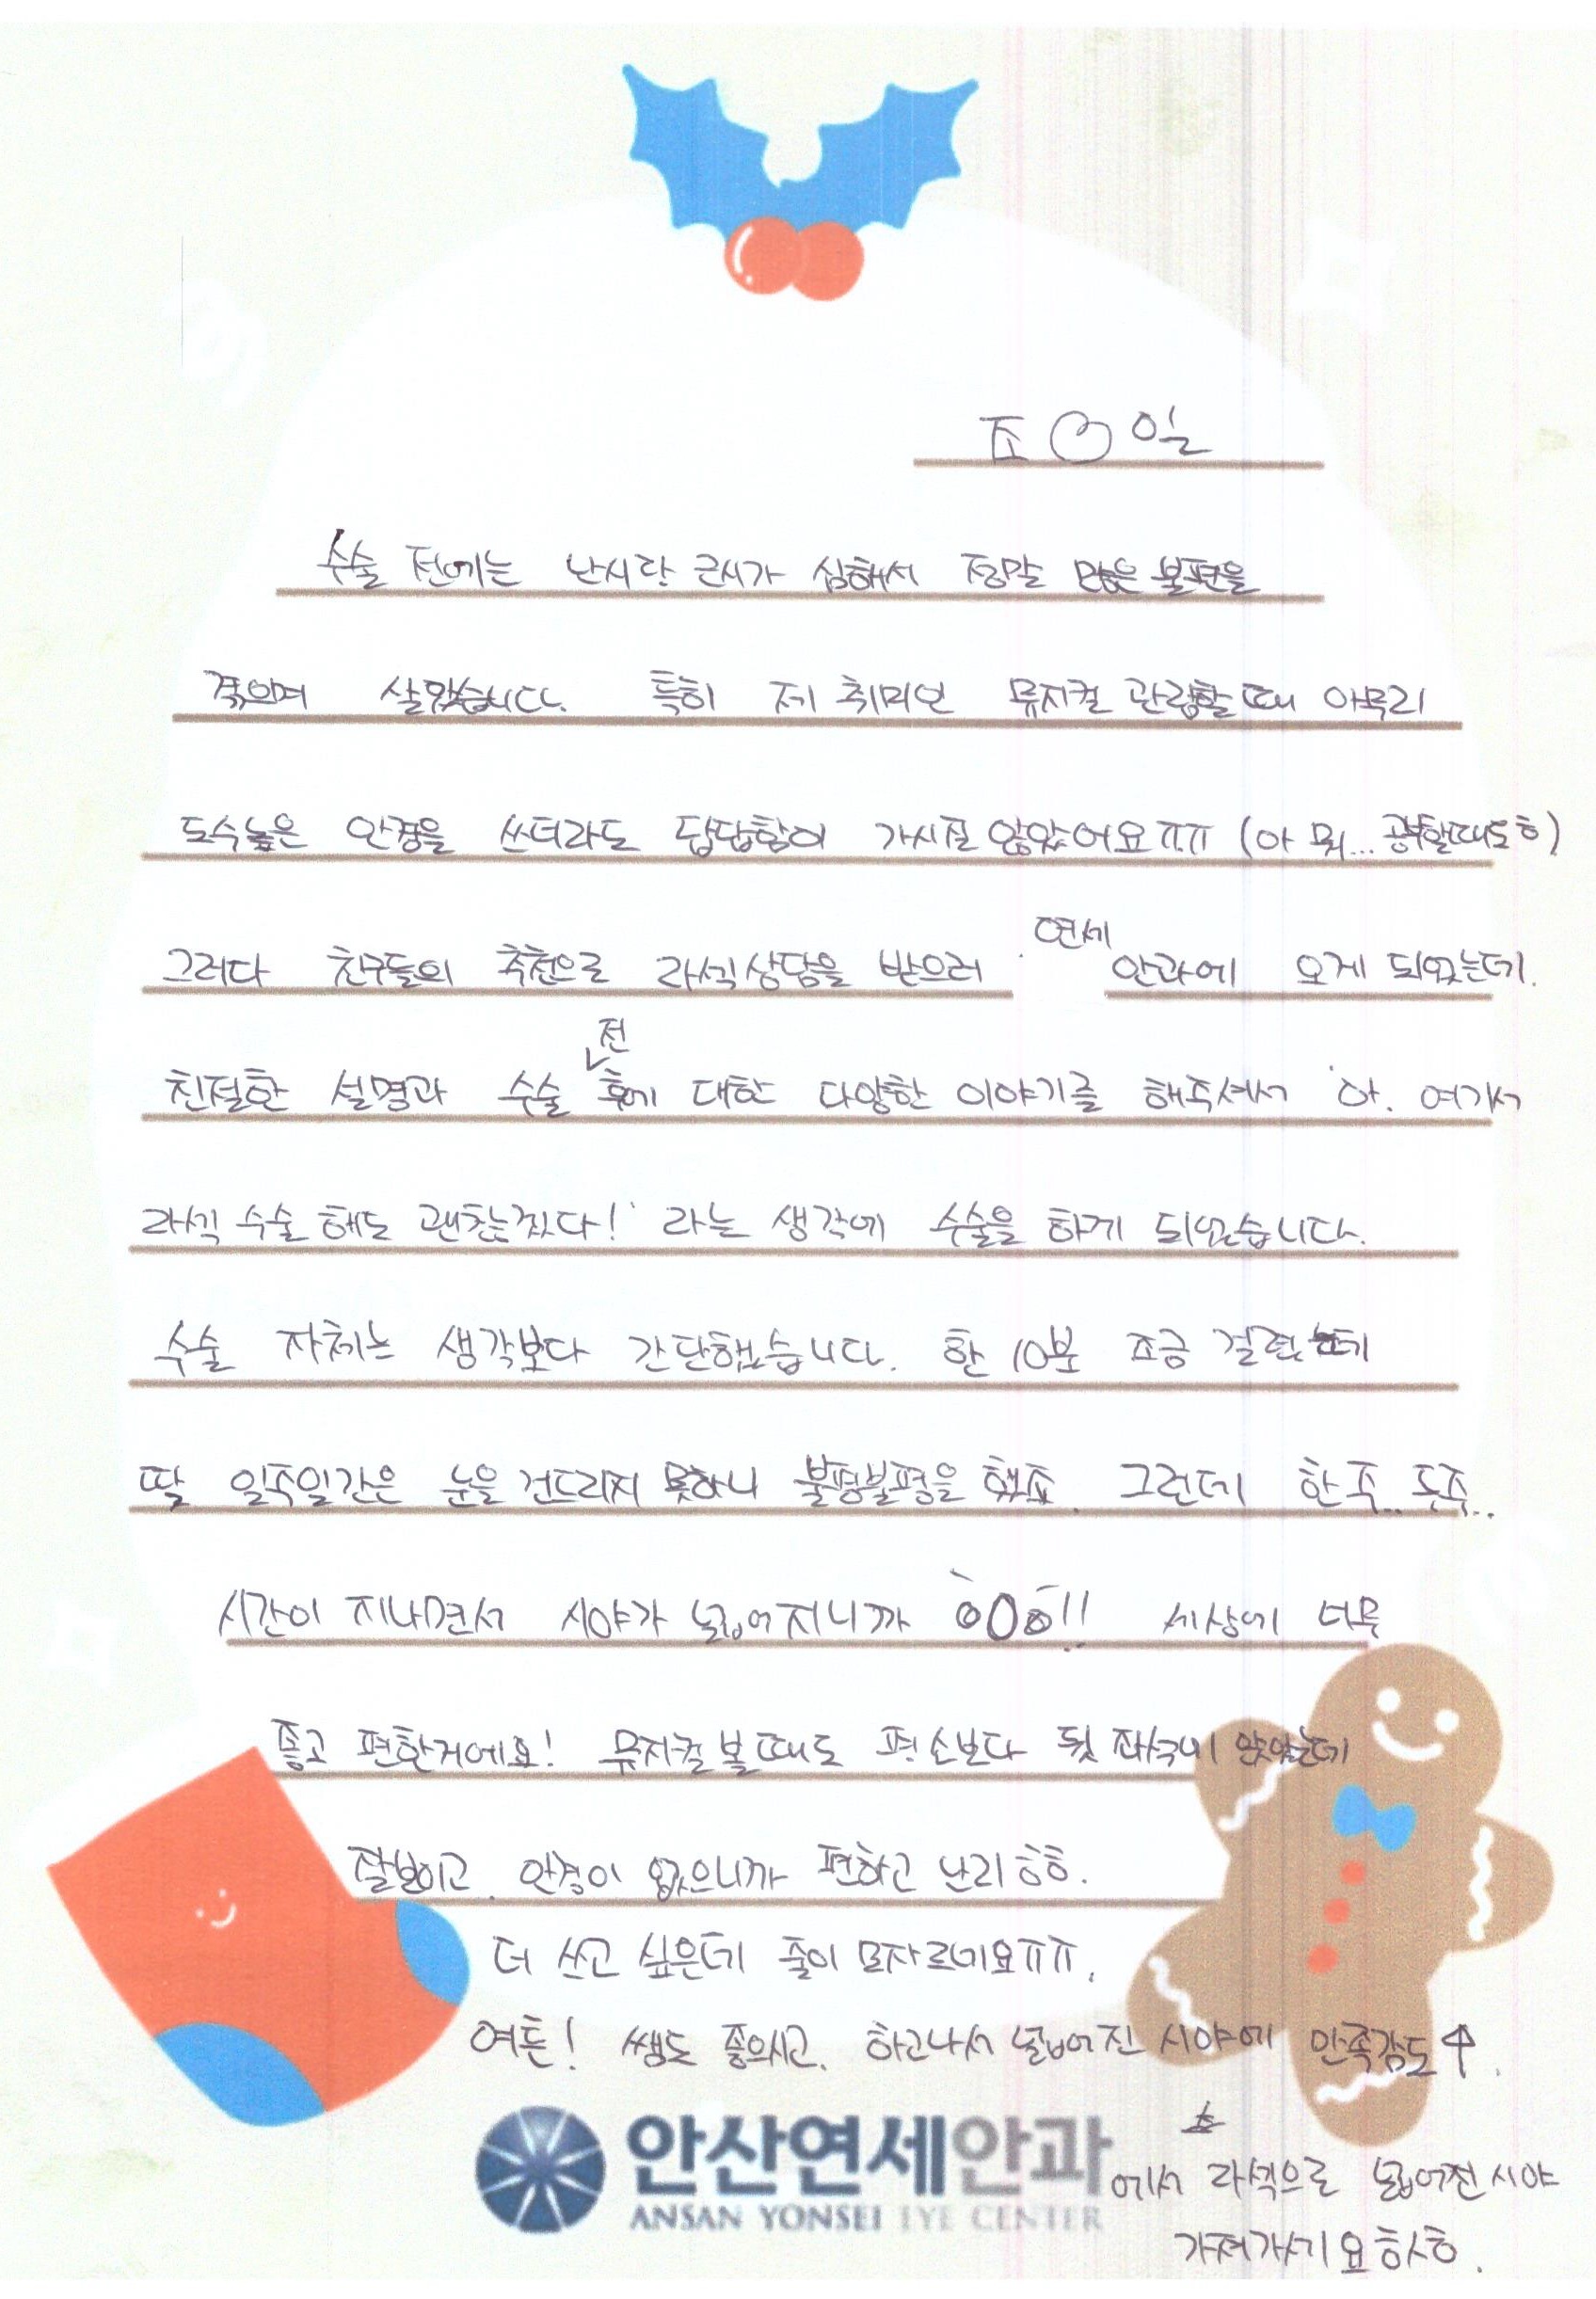 조○일
수술 전에는 난시랑 근시가 심해서 정말 많은 불편을
겪으며 살았습니다. 특히 제 취미인 뮤지컬 관람할때 아무리
도수높은 안경을 쓰더라도 답답함이 가시질 않았어요ㅠㅠ (아 뭐... 공부할때도ㅎ)
그러다 친구들의 추천으로 라섹상담을 받으러 연세 안과에 오게 되었는데.
친절한 설명과 수술 전 후에 대한 다양한 이야기를 해주셔서 '아. 여기서
라섹 수술 해도 괜찮겠다!' 라는 생각에 수술을 하게 되었습니다.
수술 자체는 생각보다 간단했습니다. 한 10분 조금 걸렸는데
딸 일주일간은 눈을 건드리지 못하니 불평불평을 했죠. 그런데 한주.. 두주..
시간이 지나면서 시야가 넓어지니까 ô0ô!! 세상에 너무
좋고 편한거에요! 뮤지컬 볼때도 평소보다 뒷 좌석에 앉았는데
잘보이고 안경이 없으니까 편하고 난리ㅎㅎ.
더 쓰고 싶은데 줄이 모자르네요ㅠㅠ.
여튼! 쌤도 좋으시고. 하고나서 넓어진 시야에 만족감도↑.
안산연세안과 에서 라섹으로 넓어진 시야
ANSAN YONSEI EYE CENTER
가져가세요ㅎㅅㅎ.